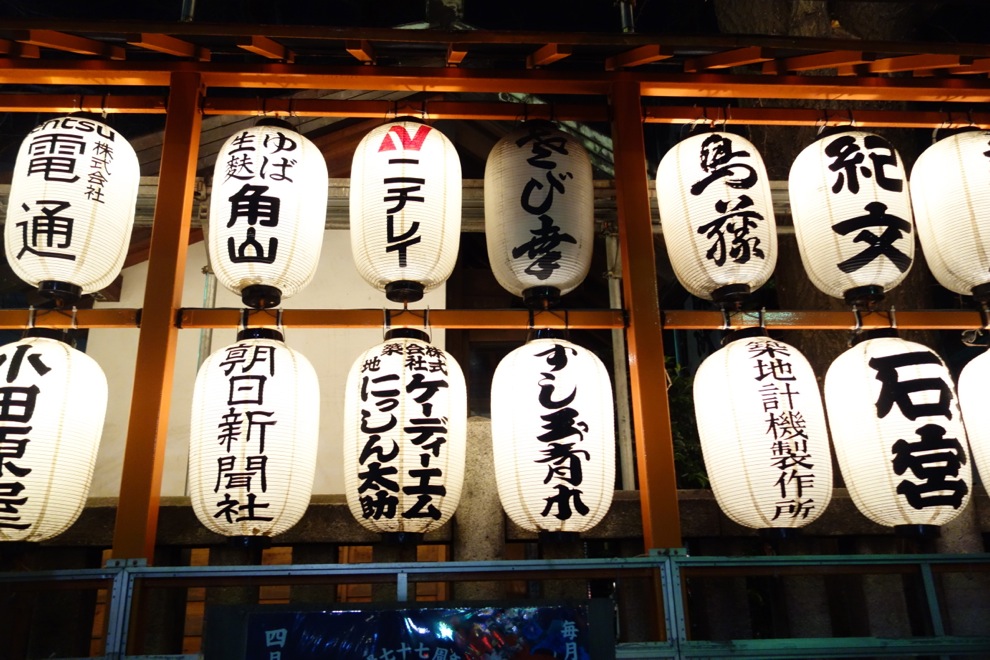 電通
株式会社
ゆば
生麩
角山
ニチレイ
きび幸
鳥藤
紀文
朝日新聞社
株式会社
ケーディーエム
築地
にっしん太助
すし玉青木
築地計機製作所
石宮
毎月